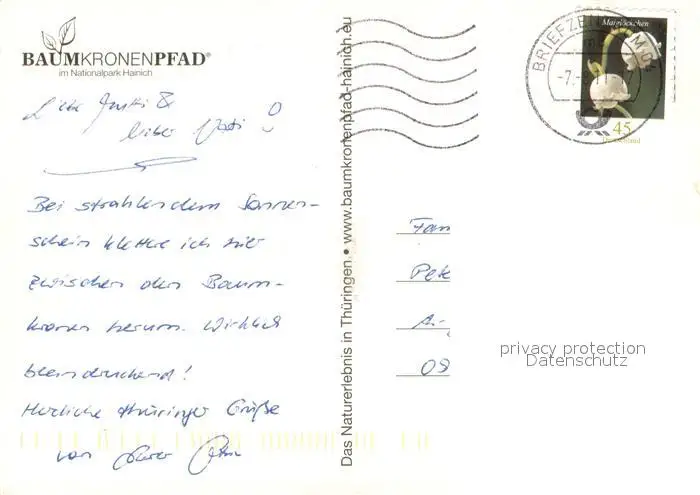 BAUMKRONENPFAD®
im Nationalpark Hainich
Liebe &
lieber Vati!
Bei strahlendem Sonnen-
schein klettere ich hier
zwischen den Baum-
kronen herum. Wirklich
beeindruckend!
Herzliche thüringer Grüße
von Eurer
Das Naturerlebnis in Thüringen • www.baumkronenpfad-hainich.eu
BRIEFZEN
45
Deutschland
Fam
Pete
A.
09
privacy protection
Datenschutz